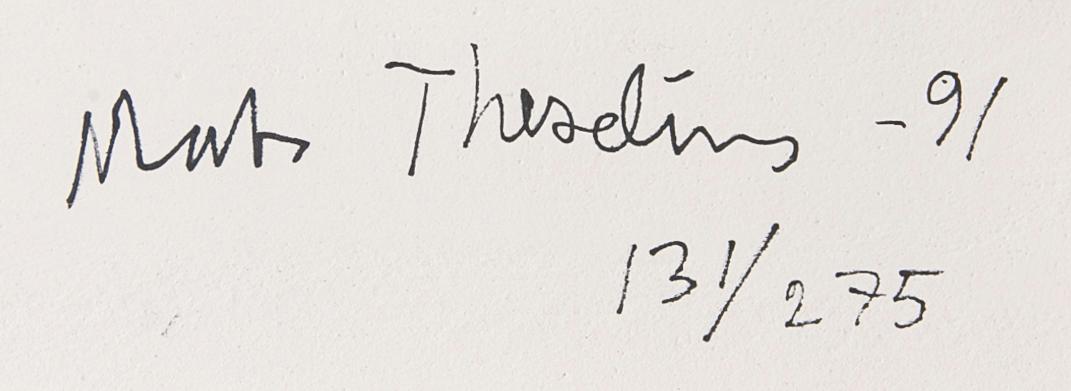 Mats Theselius -91
131/275